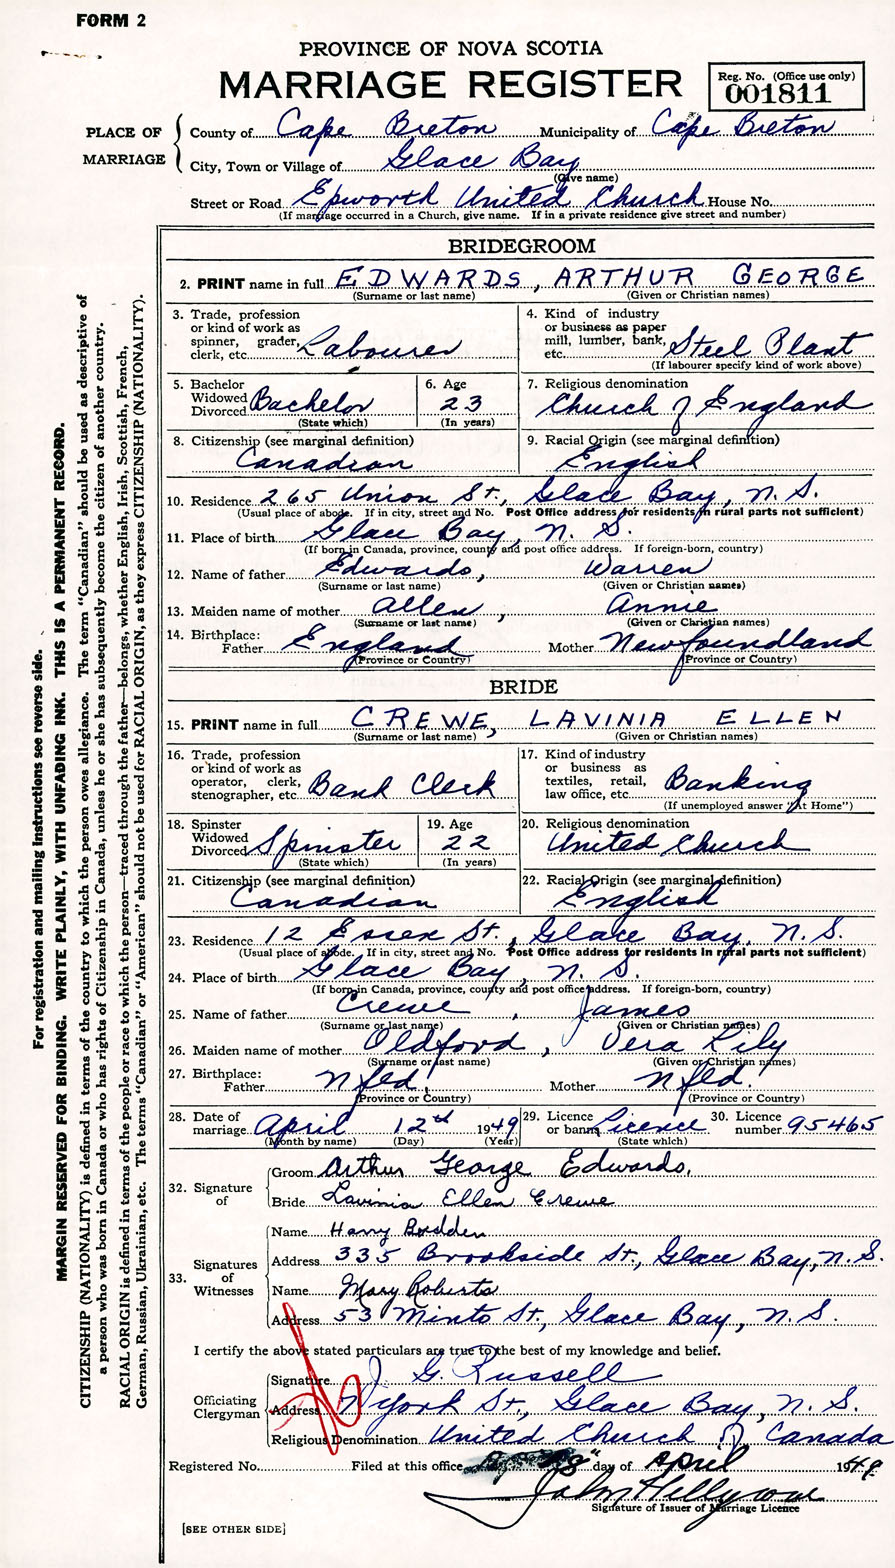 FORM 2
PROVINCE OF NOVA SCOTIA
MARRIAGE REGISTER
Reg. No. (Office use only)
001811
PLACE OF MARRIAGE
County of Cape Breton Municipality of Cape Breton
City, Town or Village of Glace Bay
(Give name)
Street or Road Epworth United Church House No.
(If marriage occurred in a Church, give name. If in a private residence give street and number)
BRIDEGROOM
2. PRINT name in full EDWARDS, ARTHUR GEORGE
(Surname or last name) (Given or Christian names)
3. Trade, profession or kind of work as spinner, grader, clerk, etc. Labourer
4. Kind of industry or business as paper mill, lumber, bank, etc. Steel Plant
(If labourer specify kind of work above)
5. Bachelor Widowed Divorced Bachelor
(State which)
6. Age 23
(In years)
7. Religious denomination Church of England
8. Citizenship (see marginal definition) Canadian
9. Racial Origin (see marginal definition) English
10. Residence 265 Union St., Glace Bay, N.S.
(Usual place of abode. If in city, street and No. Post Office address for residents in rural parts not sufficient)
11. Place of birth Glace Bay, N.S.
(If born in Canada, province, county and post office address. If foreign-born, country)
12. Name of father Edwards, Warren
(Surname or last name) (Given or Christian names)
13. Maiden name of mother Allen, Annie
(Surname or last name) (Given or Christian names)
14. Birthplace: Father England Mother Newfoundland
(Province or Country) (Province or Country)
BRIDE
15. PRINT name in full CREWE, LAVINIA ELLEN
(Surname or last name) (Given or Christian names)
16. Trade, profession or kind of work as operator, clerk, stenographer, etc. Bank Clerk
17. Kind of industry or business as textiles, retail, law office, etc. Banking
(If unemployed answer "At Home")
18. Spinster Widowed Divorced Spinster
(State which)
19. Age 22
(In years)
20. Religious denomination United Church
21. Citizenship (see marginal definition) Canadian
22. Racial Origin (see marginal definition) English
23. Residence 12 Essex St., Glace Bay, N.S.
(Usual place of abode. If in city, street and No. Post Office address for residents in rural parts not sufficient)
24. Place of birth Glace Bay, N.S.
(If born in Canada, province, county and post office address. If foreign-born, country)
25. Name of father Crewe, James
(Surname or last name) (Given or Christian names)
26. Maiden name of mother Oldford, Vera Lily
(Surname or last name) (Given or Christian names)
27. Birthplace: Father Nfld. Mother Nfld.
(Province or Country) (Province or Country)
28. Date of marriage April 12th 1949
(Month by name) (Day) (Year)
29. Licence or banns Licence
(State which)
30. Licence number 95465
32. Signature of
Groom Arthur George Edwards.
Bride Lavinia Ellen Crewe
33. Signatures of Witnesses
Name Harry Budden
Address 335 Brookside St., Glace Bay, N.S.
Name Mary Roberts
Address 53 Minto St., Glace Bay, N.S.
I certify the above stated particulars are true to the best of my knowledge and belief.
Officiating Clergyman
Signature J. G. Russell
Address York St., Glace Bay, N.S.
Religious Denomination United Church of Canada
Registered No. Filed at this office day of April 1949
Signature of Issuer of Marriage Licence
[SEE OTHER SIDE]
For registration and mailing instructions see reverse side.
MARGIN RESERVED FOR BINDING. WRITE PLAINLY, WITH UNFADING INK. THIS IS A PERMANENT RECORD.
CITIZENSHIP (NATIONALITY) is defined in terms of the country to which the person owes allegiance. The term "Canadian" should be used as descriptive of
a person who was born in Canada or who has rights of Citizenship in Canada, unless he or she has subsequently become the citizen of another country.
RACIAL ORIGIN is defined in terms of the people or race to which the person—traced through the father—belongs, whether English, Irish, Scottish, French,
German, Russian, Ukrainian, etc. The terms "Canadian" or "American" should not be used for RACIAL ORIGIN, as they express CITIZENSHIP (NATIONALITY).